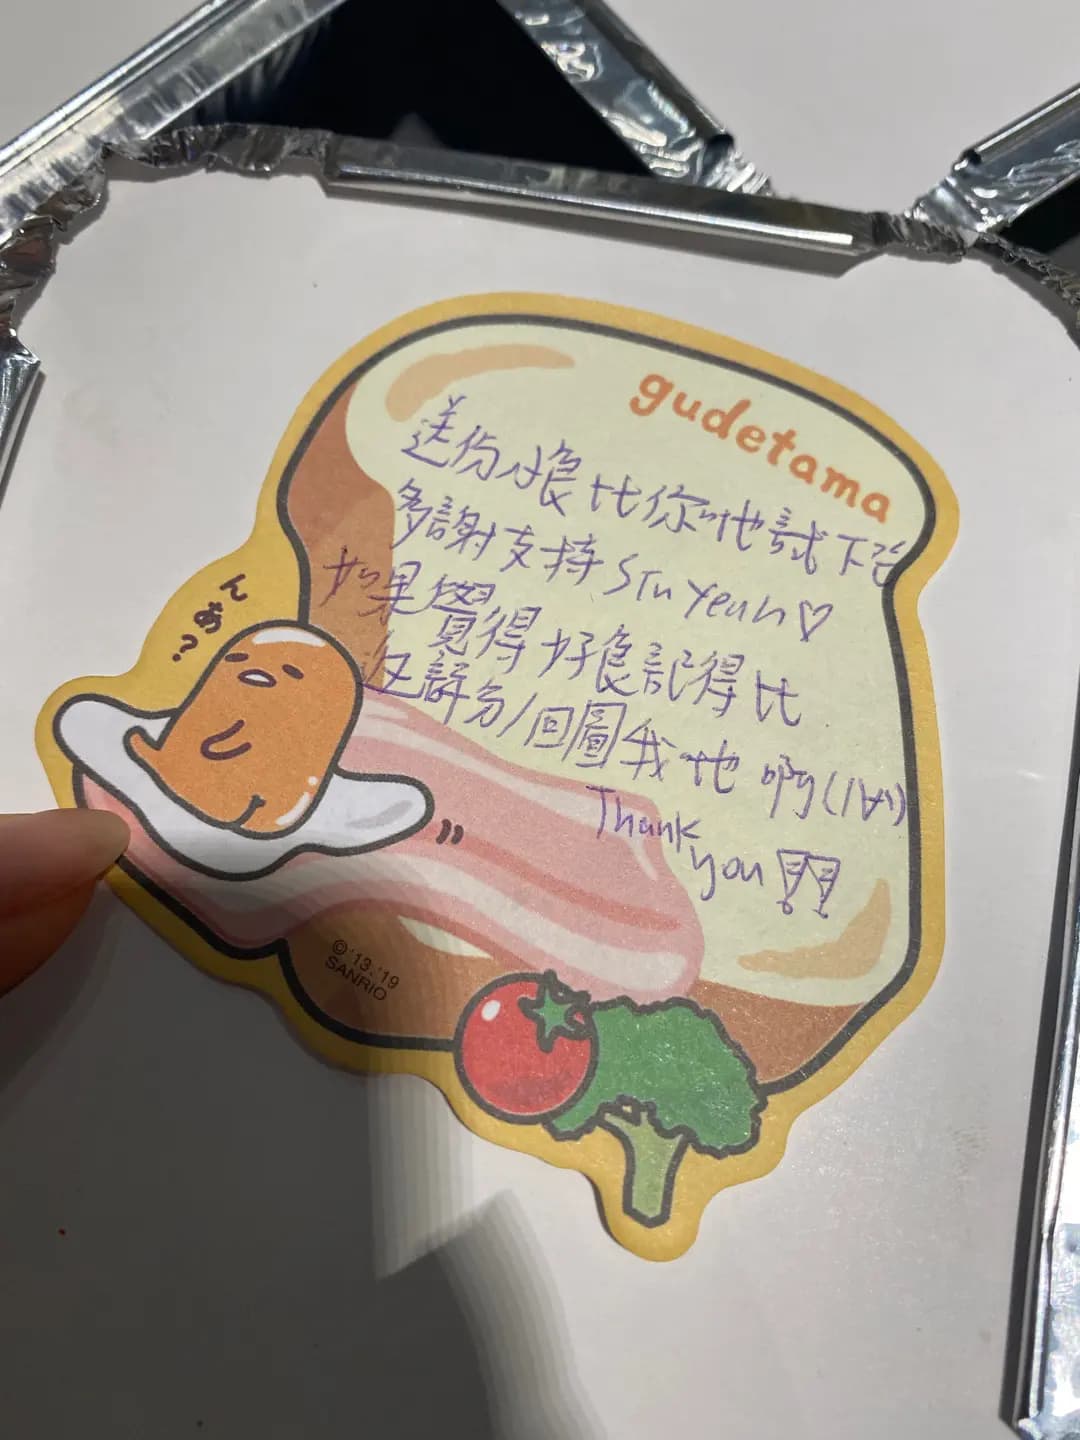 gudetama
送份小食比你哋試下先
多謝支持 STu Yeun♡
如果覺得好食記得比
返評分/回圖我哋啊(/∀\)
Thank
you !!
んあ?
© '13, '19
SANRIO